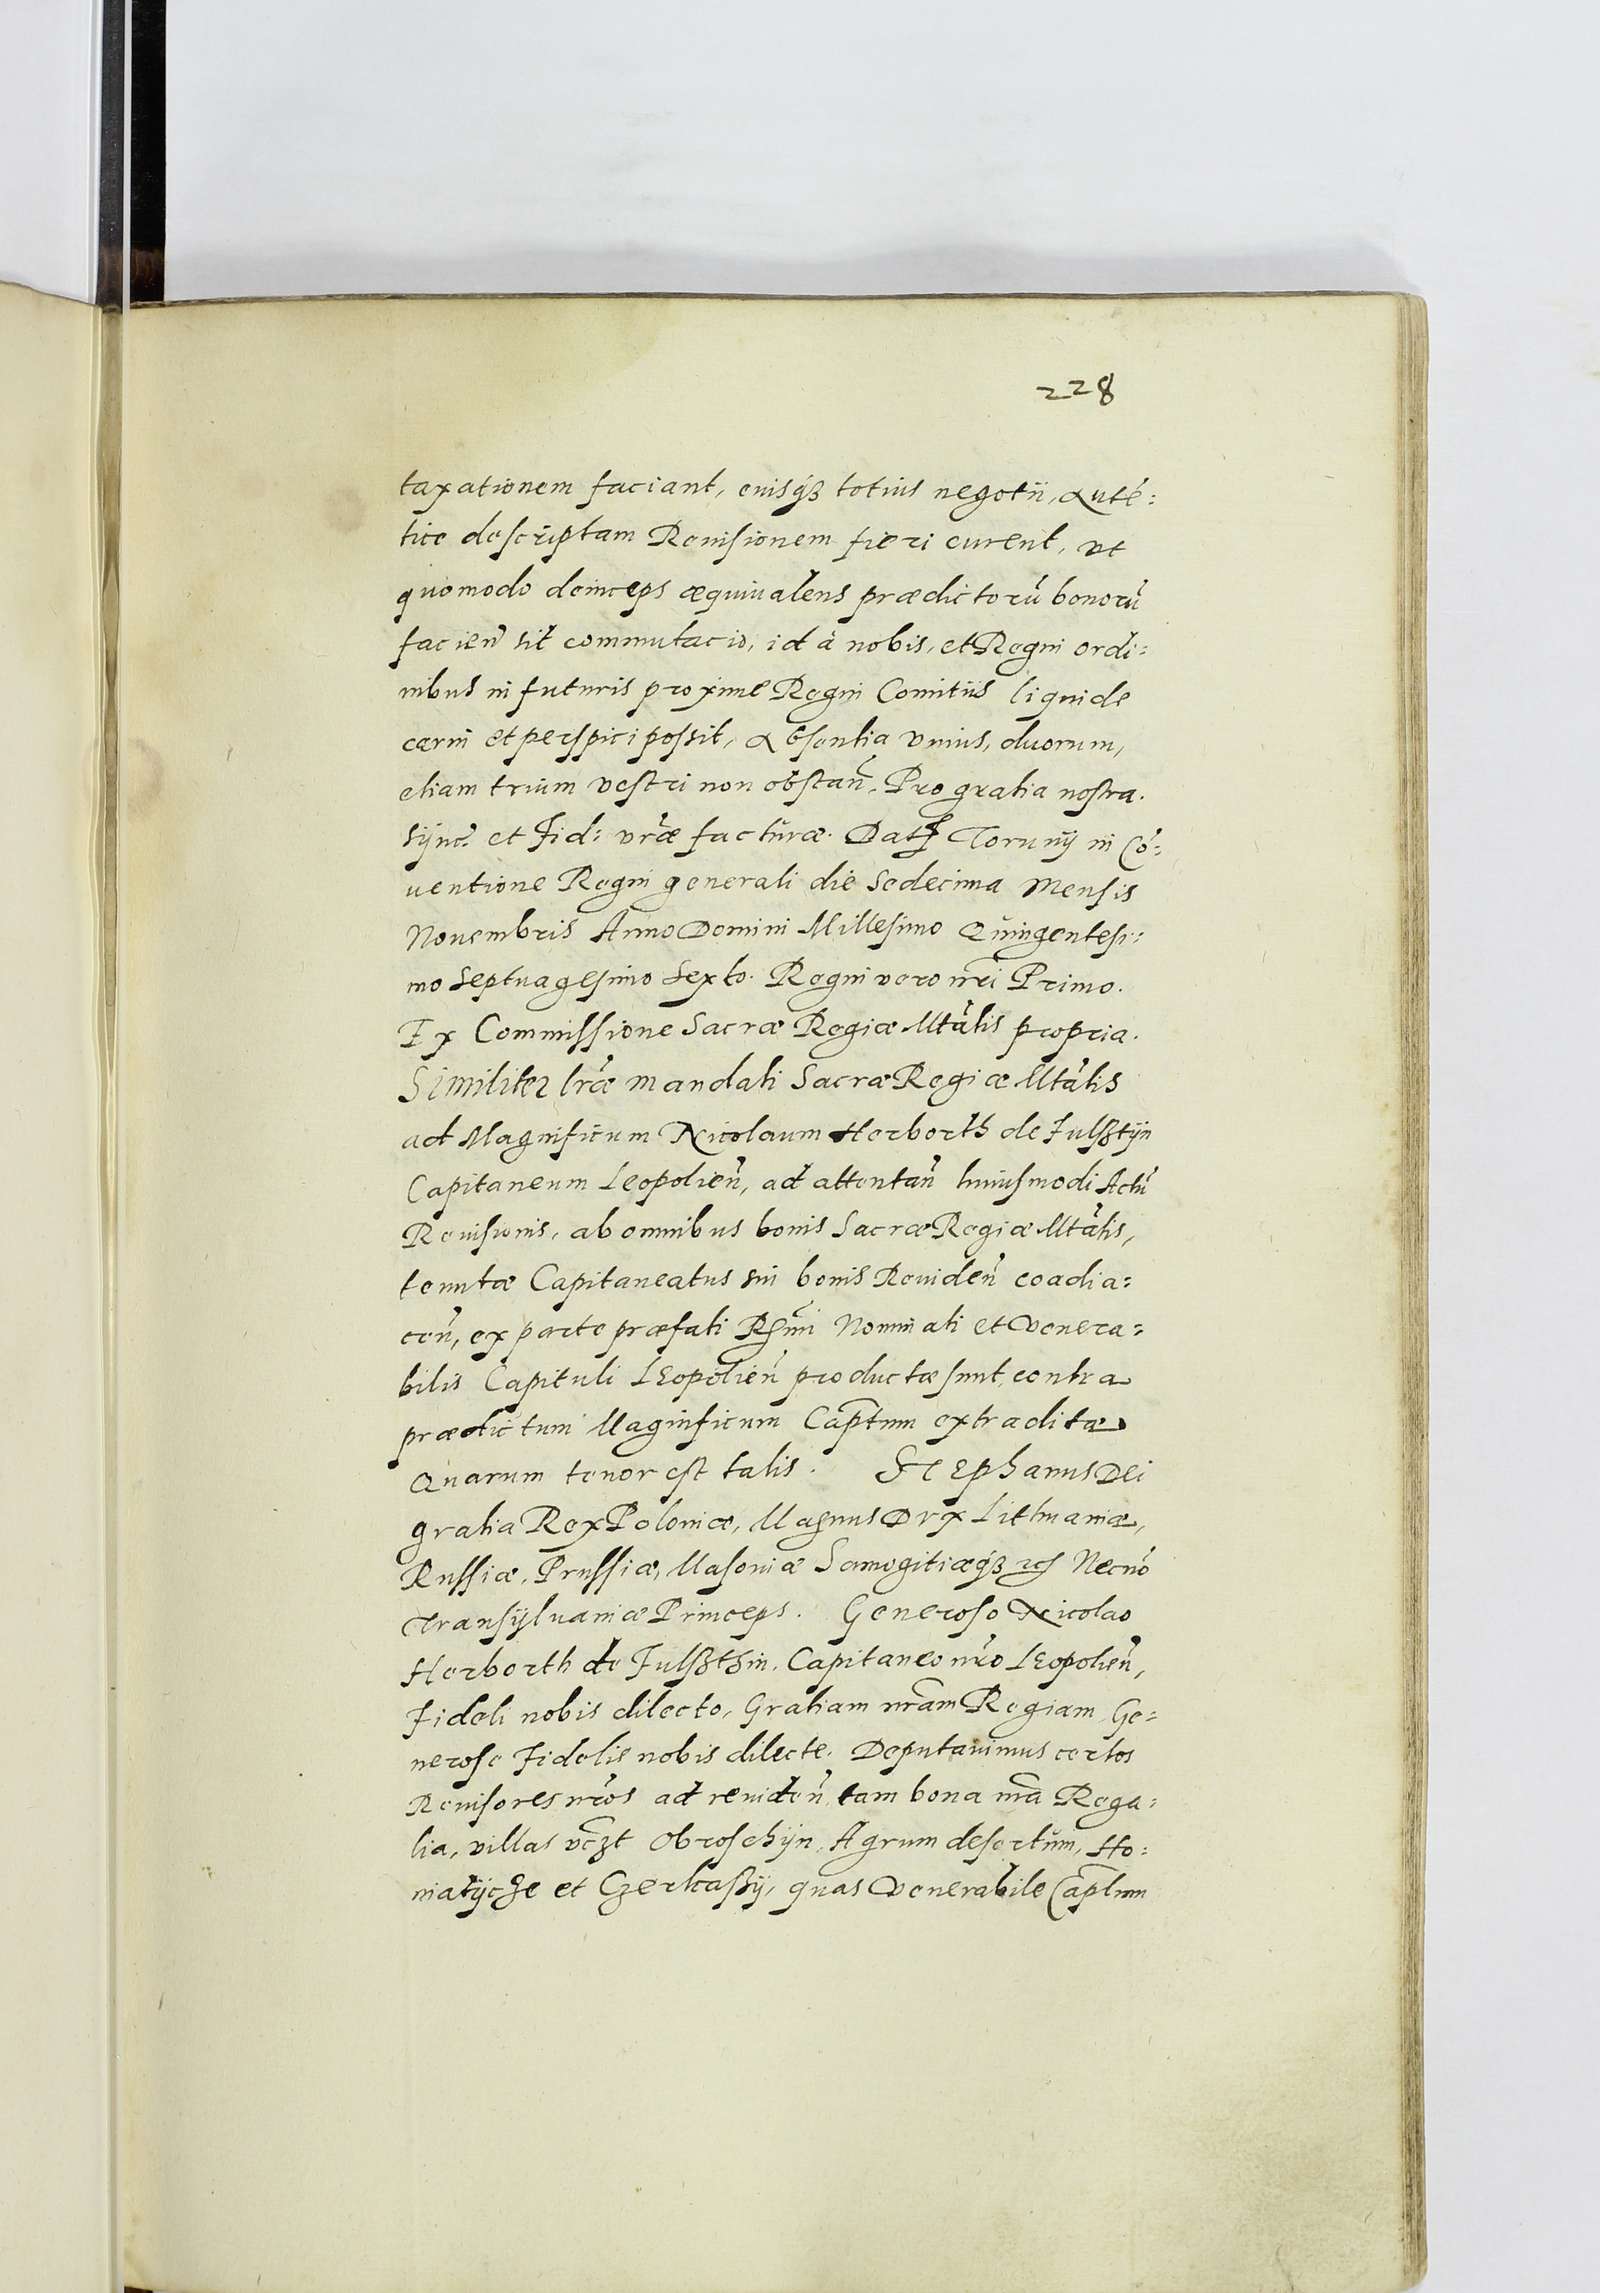 228
taxationem faciant, eiusq́ꝫ totius negotii, Auté:
tice descriptam Reuisionem fieri curent, vt
quomodo deinceps æquiualens prædictorū bonorū
facien̄ sit commutacio, id à nobis, et Regni ordi:
nibus in futuris proxime Regni Comitiis liquide
cerni et perspici possit, Absentia vnius, duorum,
etiam trium vestri non obstan̄, Pro gratia nostra.
Sÿnc: et Fid: vr̄æ facturæ. Dat Torunÿ in Có:
uentione Regni generali die Sedecima Mensis
Nouembris Anno Domini Millesimo Quingentesi:
mo Septuagesimo Sexto. Regni vero nr̄i Primo.
Ex Commissione Sacræ Regiæ Mtātis propria.
Similiter lrāe mandati Sacræ Regiæ Mtātis
ad Magnificum Nicolaum Herborth de Fulsztÿn
Capitaneum Leopolien̄, ad attentan̄ huiusmodi Actū
Reuisionis, ab omnibus bonis Sacræ Regiæ Mtātis,
tenutæ Capitaneatus sui bonis Reuiden̄ coadia:
cen̄, ex parte præfati Rsm̄i Nominati et Venera:
bilis Capituli Leopolien̄ productæ sunt, contra
prædictum Magnificum Capt̄num extraditæ
Quarum tenor est talis. Stephanus Dei
gratia Rex Poloniæ, Magnus Dux Lithuaniæ,
Russiæ, Prussiæ, Masouiæ Samogitiæq́ꝫ ꝛcꝭ Necnó
Transÿluaniæ Princeps. Generoso Nicolao
Herborth de Fulszthin, Capitaneo nr̄o Leopolien̄,
Fideli nobis dilecto, Gratiam nr̄am Regiam, Ge:
nerose Fidelis nobis dilecte. Deputauimus certos
Reuisores nr̄os ad reuiden̄ tam bona nr̄a Rega:
lia, villas vcz̄t Obroschÿn, Agrum desertum, Ho:
niatÿcze et Czerkassÿ, quas Venerabile Capl̄um